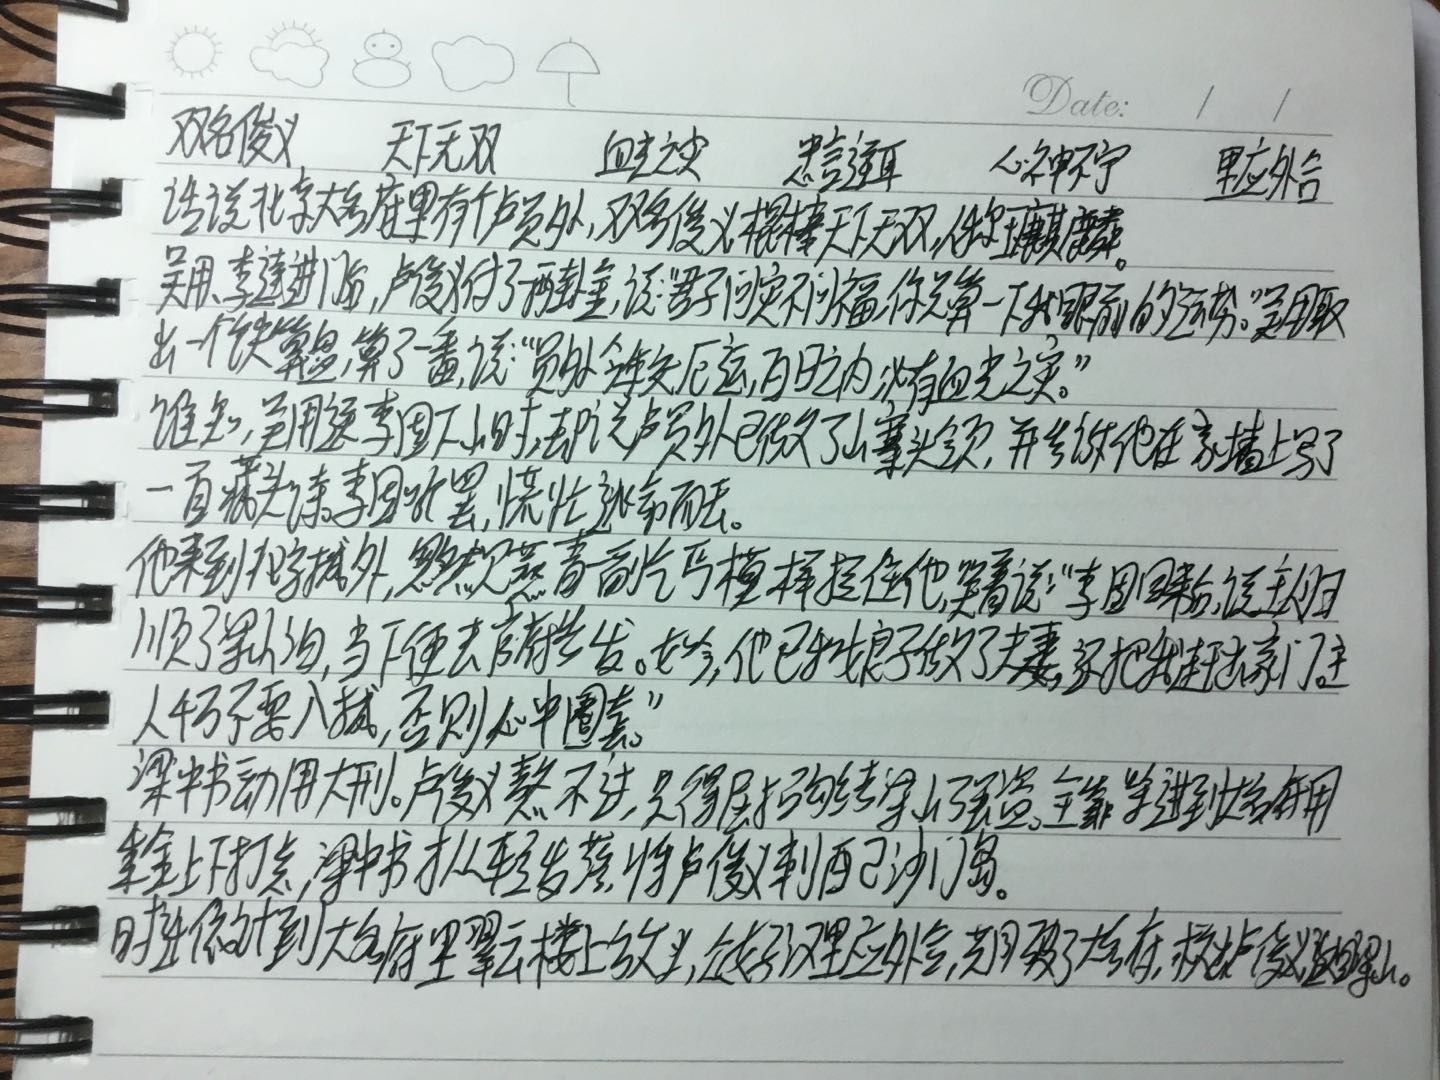 Date: / /
双名俊义 天下无双 血光之灾 忠言逆耳 心神不宁 里应外合
话说北京大名府里有个卢员外，双名俊义，棍棒天下无双，绰号玉麒麟。
吴用、李逵进门后，卢俊义付了两卦金，说：“君子问灾不问福，你只算一下我眼前的运势。”吴用取
出一个铁算盘，算了一番，说：“员外今年交厄运，百日之内必有血光之灾。”
谁知，吴用送李固下山时，却说卢员外已做了山寨头领，并告诉他在家墙上写了
一首藏头诗。李固听罢，慌忙逃命而去。
他来到北京城外，忽然见燕青一副乞丐模样拦住他，哭着说：“李固回来后，说主人归
顺了梁山泊，当下便去官府告发。如今，他已和娘子做了夫妻，还把我赶出家门。主
人千万不要入城，否则必中圈套。”
梁中书动用大刑。卢俊义熬不过，只得屈招勾结梁山强盗。全靠柴进到大名府用
重金上下打点，梁中书才从轻发落，将卢俊义刺配沙门岛。
时迁依计到大名府里翠云楼上放火，众好汉里应外合，吴用破了大名府，救出卢俊义，回到梁山。